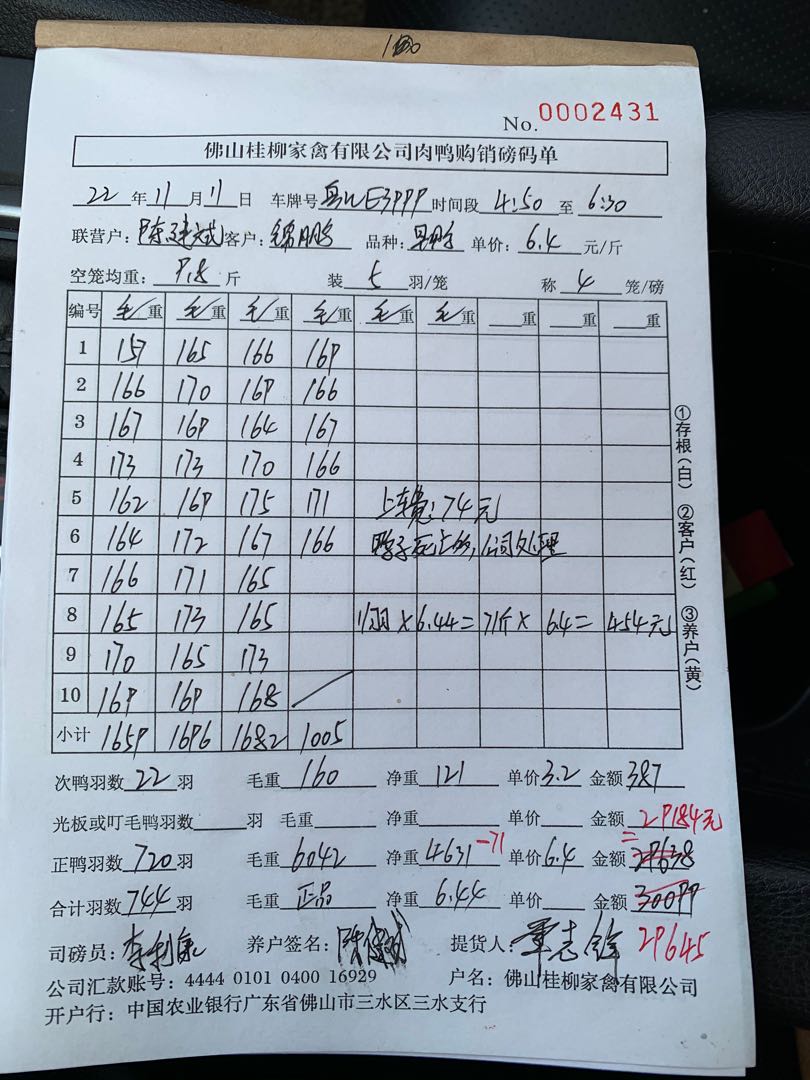 No. 0002431
佛山桂柳家禽有限公司肉鸭购销磅码单
22 年 11 月 11 日 车牌号 粤WE3999 时间段 4:50 至 6:30
联营户: 陈建斌 客户: 锦鹏 品种: 单价: 6.4 元/斤
空笼均重: 9.8 斤 装 5 羽/笼 称 4 笼/磅
编号 毛重 毛重 毛重 毛重 毛重 毛重 重 重 重
1 157 165 166 169
2 166 170 169 166
3 167 169 164 167
4 173 173 170 166
5 162 169 175 171 上车费:74元
6 164 172 167 166 鸭子死上的,公司处理
7 166 171 165
8 165 173 165 11羽×6.44=71斤×6.4=454元
9 170 165 173
10 169 169 168
小计 1659 1696 1682 1005
次鸭羽数 22 羽 毛重 160 净重 121 单价 3.2 金额 387
光板或叮毛鸭羽数 羽 毛重 净重 单价 金额 29184元
正鸭羽数 720 羽 毛重 6042 净重 4631 -71 单价 6.4 金额 = 29638
合计羽数 744 羽 毛重 正品 净重 6.44 单价 金额 30099
司磅员: 养户签名: 提货人: 29645
公司汇款账号: 4444 0101 0400 16929 户名: 佛山桂柳家禽有限公司
开户行: 中国农业银行广东省佛山市三水区三水支行
①存根(白) ②客户(红) ③养户(黄)